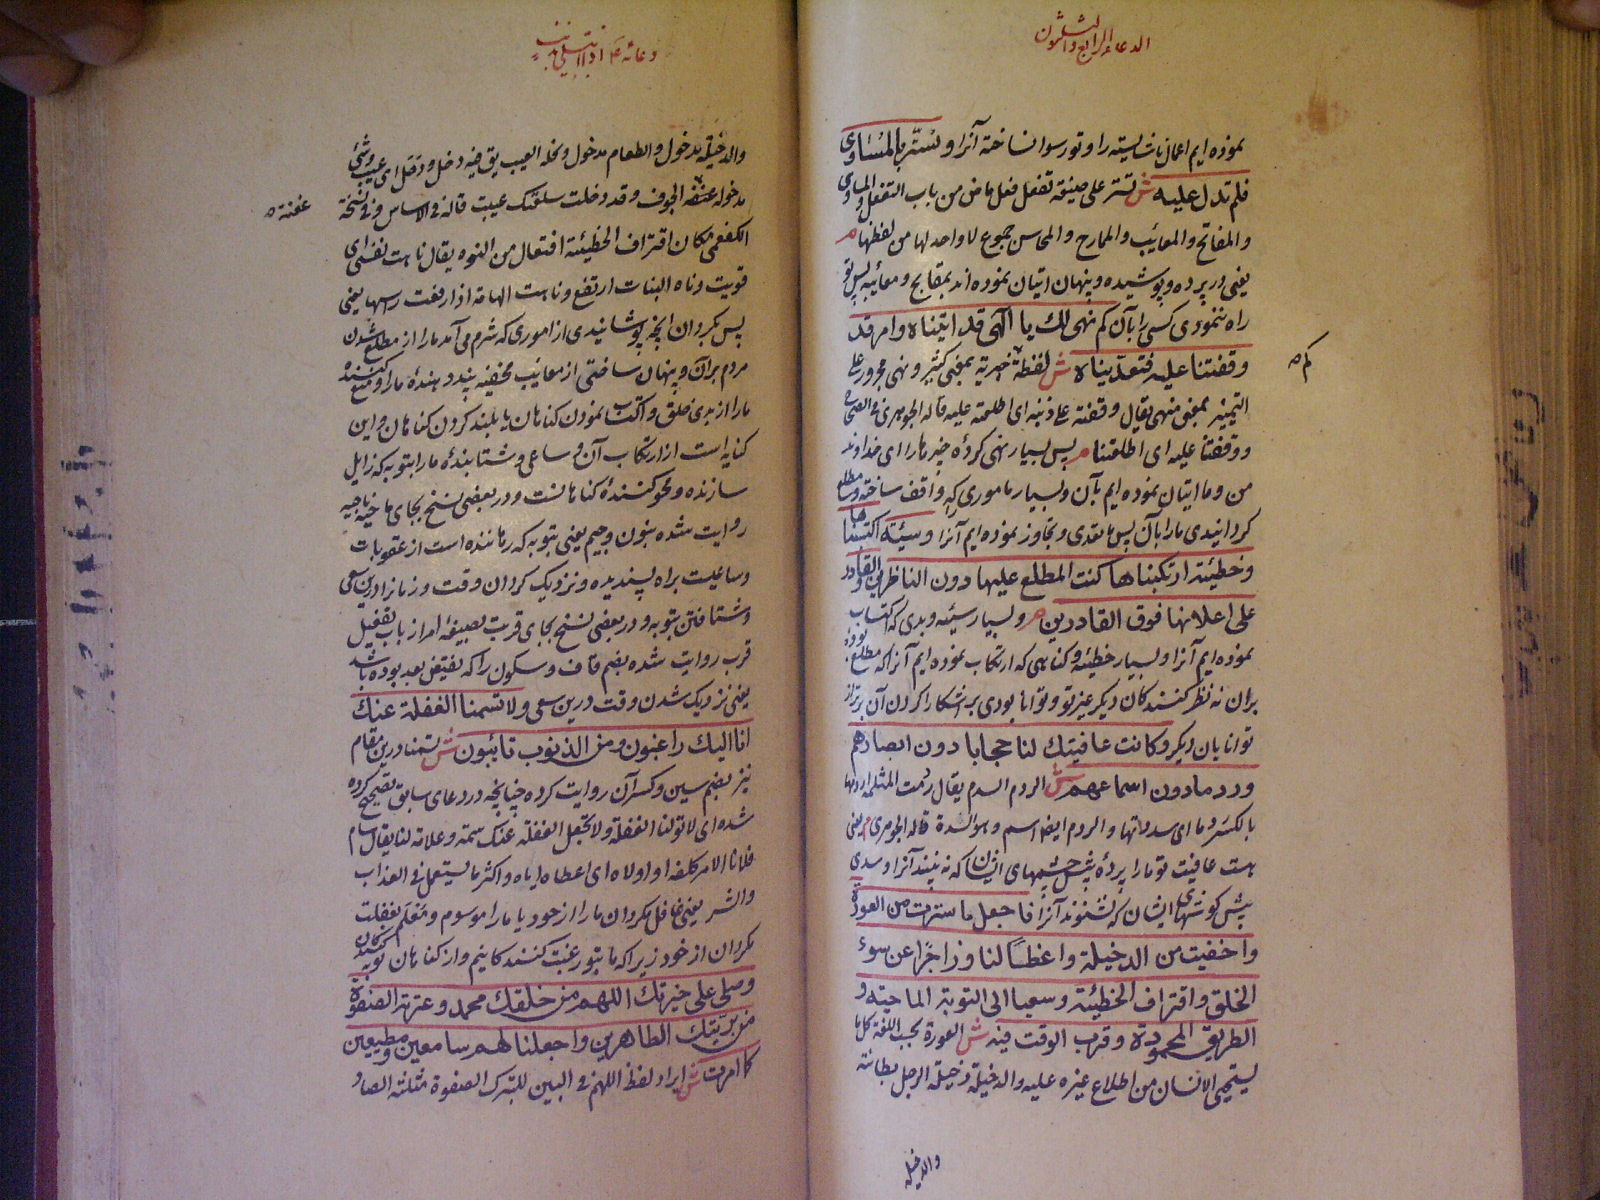 الدعاء الرابع والثلثون
نموده ايم اعمال ناشايسته را و تو رسوا نساختۀ آنرا و تستّر بالمساوى
فلم تدلل عليه ش تستر على صيغة تفعل فعل ماض من باب التفعل والمساوى
والمقابح والمعائب والممادح والمحاسن جموع لا واحد لها من لفظها م
يعنى در پرده و پوشيده و پنهان اتيان نموده اند بمقابح و معائب پس تو
راه ننمودى كسى را بآن كم نهى لك يا الهى قد اتيناه وامر قد
وقفتنا عليه فتعديناه ش لفظة كم خبرية بمعنى كثير و نهى مجرور على
التمييز بمعنى منهى يقال وقفته على ذنبه اى اطلعته عليه قاله الجوهرى فى الصحاح
ووقفتنا عليه اى اطلعتنا م پس بسيار نهى كردۀ چيز ما را اى خداوند
من و ما اتيان نموده ايم بآن و بسيار مامورى كه واقف ساختۀ و مطلع
كردانيدى ما را بآن پس ما تعدى و تجاوز نموده ايم آنرا و سيئة اكتسبناها
وخطيئة ارتكبناها كنت المطلع عليها دون الناظرين والقادر
على اعلانها فوق القادرين م و بسيار سيئه و بدى كه اكتساب
نموده ايم آنرا و بسيار خطيئه و كناهى كه ارتكاب نموده ايم آنرا كه مطلع بودۀ
بران نه نظر كنندكان ديكر غير تو و توانا بودى بر آشكارا كردن آن برتر از
توانايان ديكر وكانت عافيتك لنا حجابا دون ابصارهم
وردما دون اسماعهم ش الردم السدم يقال ردمت الثلمة اردمها
بالكسر ردما اى سددتها والردم ايضا اسم وهو السد قاله الجوهرى م يعنى
هست عافيت تو ما را پردۀ پيش چشمهاى ايشان كه نه بينند آنرا و سدى
پيش كوشهاى ايشان كه نشنوند آنرا فاجعل ما سترت من العورة
واخفيت من الدخيلة واعظا لنا وزاجرًا عن سوء
الخلق واقتراف الخطيئة وسعيا الى التوبة الماحية و
الطريق المحمودة وقرب الوقت فيه ش العورة بحسب اللغة كل ما
يستحيى الانسان من اطلاع غيره عليه والدخيلة دخيلة الرجل بطانته
والدخيلة
كم ص
دعائه ع اذا ابتلى
والدخيلة مدخول والطعام مدخول ونخله العيب يق فيه دخل ودخل اى عيب وشئ
مدخوله عفنة الجوف وقد دخلت سلعتك عيبت قاله فى الاساس وفى نسخة
الكفعمى مكان اقتراف الخطيئة افتعال من النوه يقال ناهت نفسى اى
قويت وناه النبات ارتفع وناهت الهامة اذا رفعت رأسها يعنى
پس بكردان انچه پوشانيدى از امورى كه شرم مى آمد ما را از مطلع شدن
مردم بران و پنهان ساختى از معائب مخفيه پند دهندۀ ما را و منع كنندۀ
ما را از بدى خلق و اكتساب نمودن كناهان يا بلند كردن كناهان و اين
كنايه است از ارتكاب آن و ساعى و شتابندۀ ما را بتوبه كه زايل
سازنده و محو كنندۀ كناهانست و در بعضى نسخ بجاى ماحيه ناجيه
روايت شده بنون و جيم يعنى بتوبه كه رهاننده است از عقوبات
و ساعيت براه پسنديده و نزديك كردان وقت و زمانرا درين سعى
و شتافتن بتوبه و در بعضى نسخ بجاى قرب بصيغۀ امر از باب تفعيل
قرب روايت شده بضم قاف و سكون را كه نقيض بعد بوده باشد
يعنى نزديك شدن وقت درين سعى ولا تسمنا الغفلة عنك
انا اليك راغبون ومن الذنوب تائبون ش تسمنا درين مقام
نيز بضم سين و كسر آن روايت كرده چنانچه در دعاى سابق تصحيح كرده
شده اى لا تولنا الغفلة ولا تجعل الغفلة عنك سمة وعلامة لنا يقال سام
فلانا الامر كلفه او اولاه اى اعطاه اياه واكثر ما يستعمل فى العذاب
والشر يعنى غافل مكردان ما را از خود يا ما را موسوم و معلم بغفلت
مكردان از خود زيرا كه ما بتو رغبت كنندكانيم و از كناهان توبه كنندكان
وصل على خيرتك اللهم من خلقك محمد وعترته الصفوة
من بريتك الطاهرين واجعلنا لهم سامعين ومطيعين
كما امرت ش ايراد لفظ اللهم فى البين للتبرك الصفوة مثلثة الصاد
عفنة ص